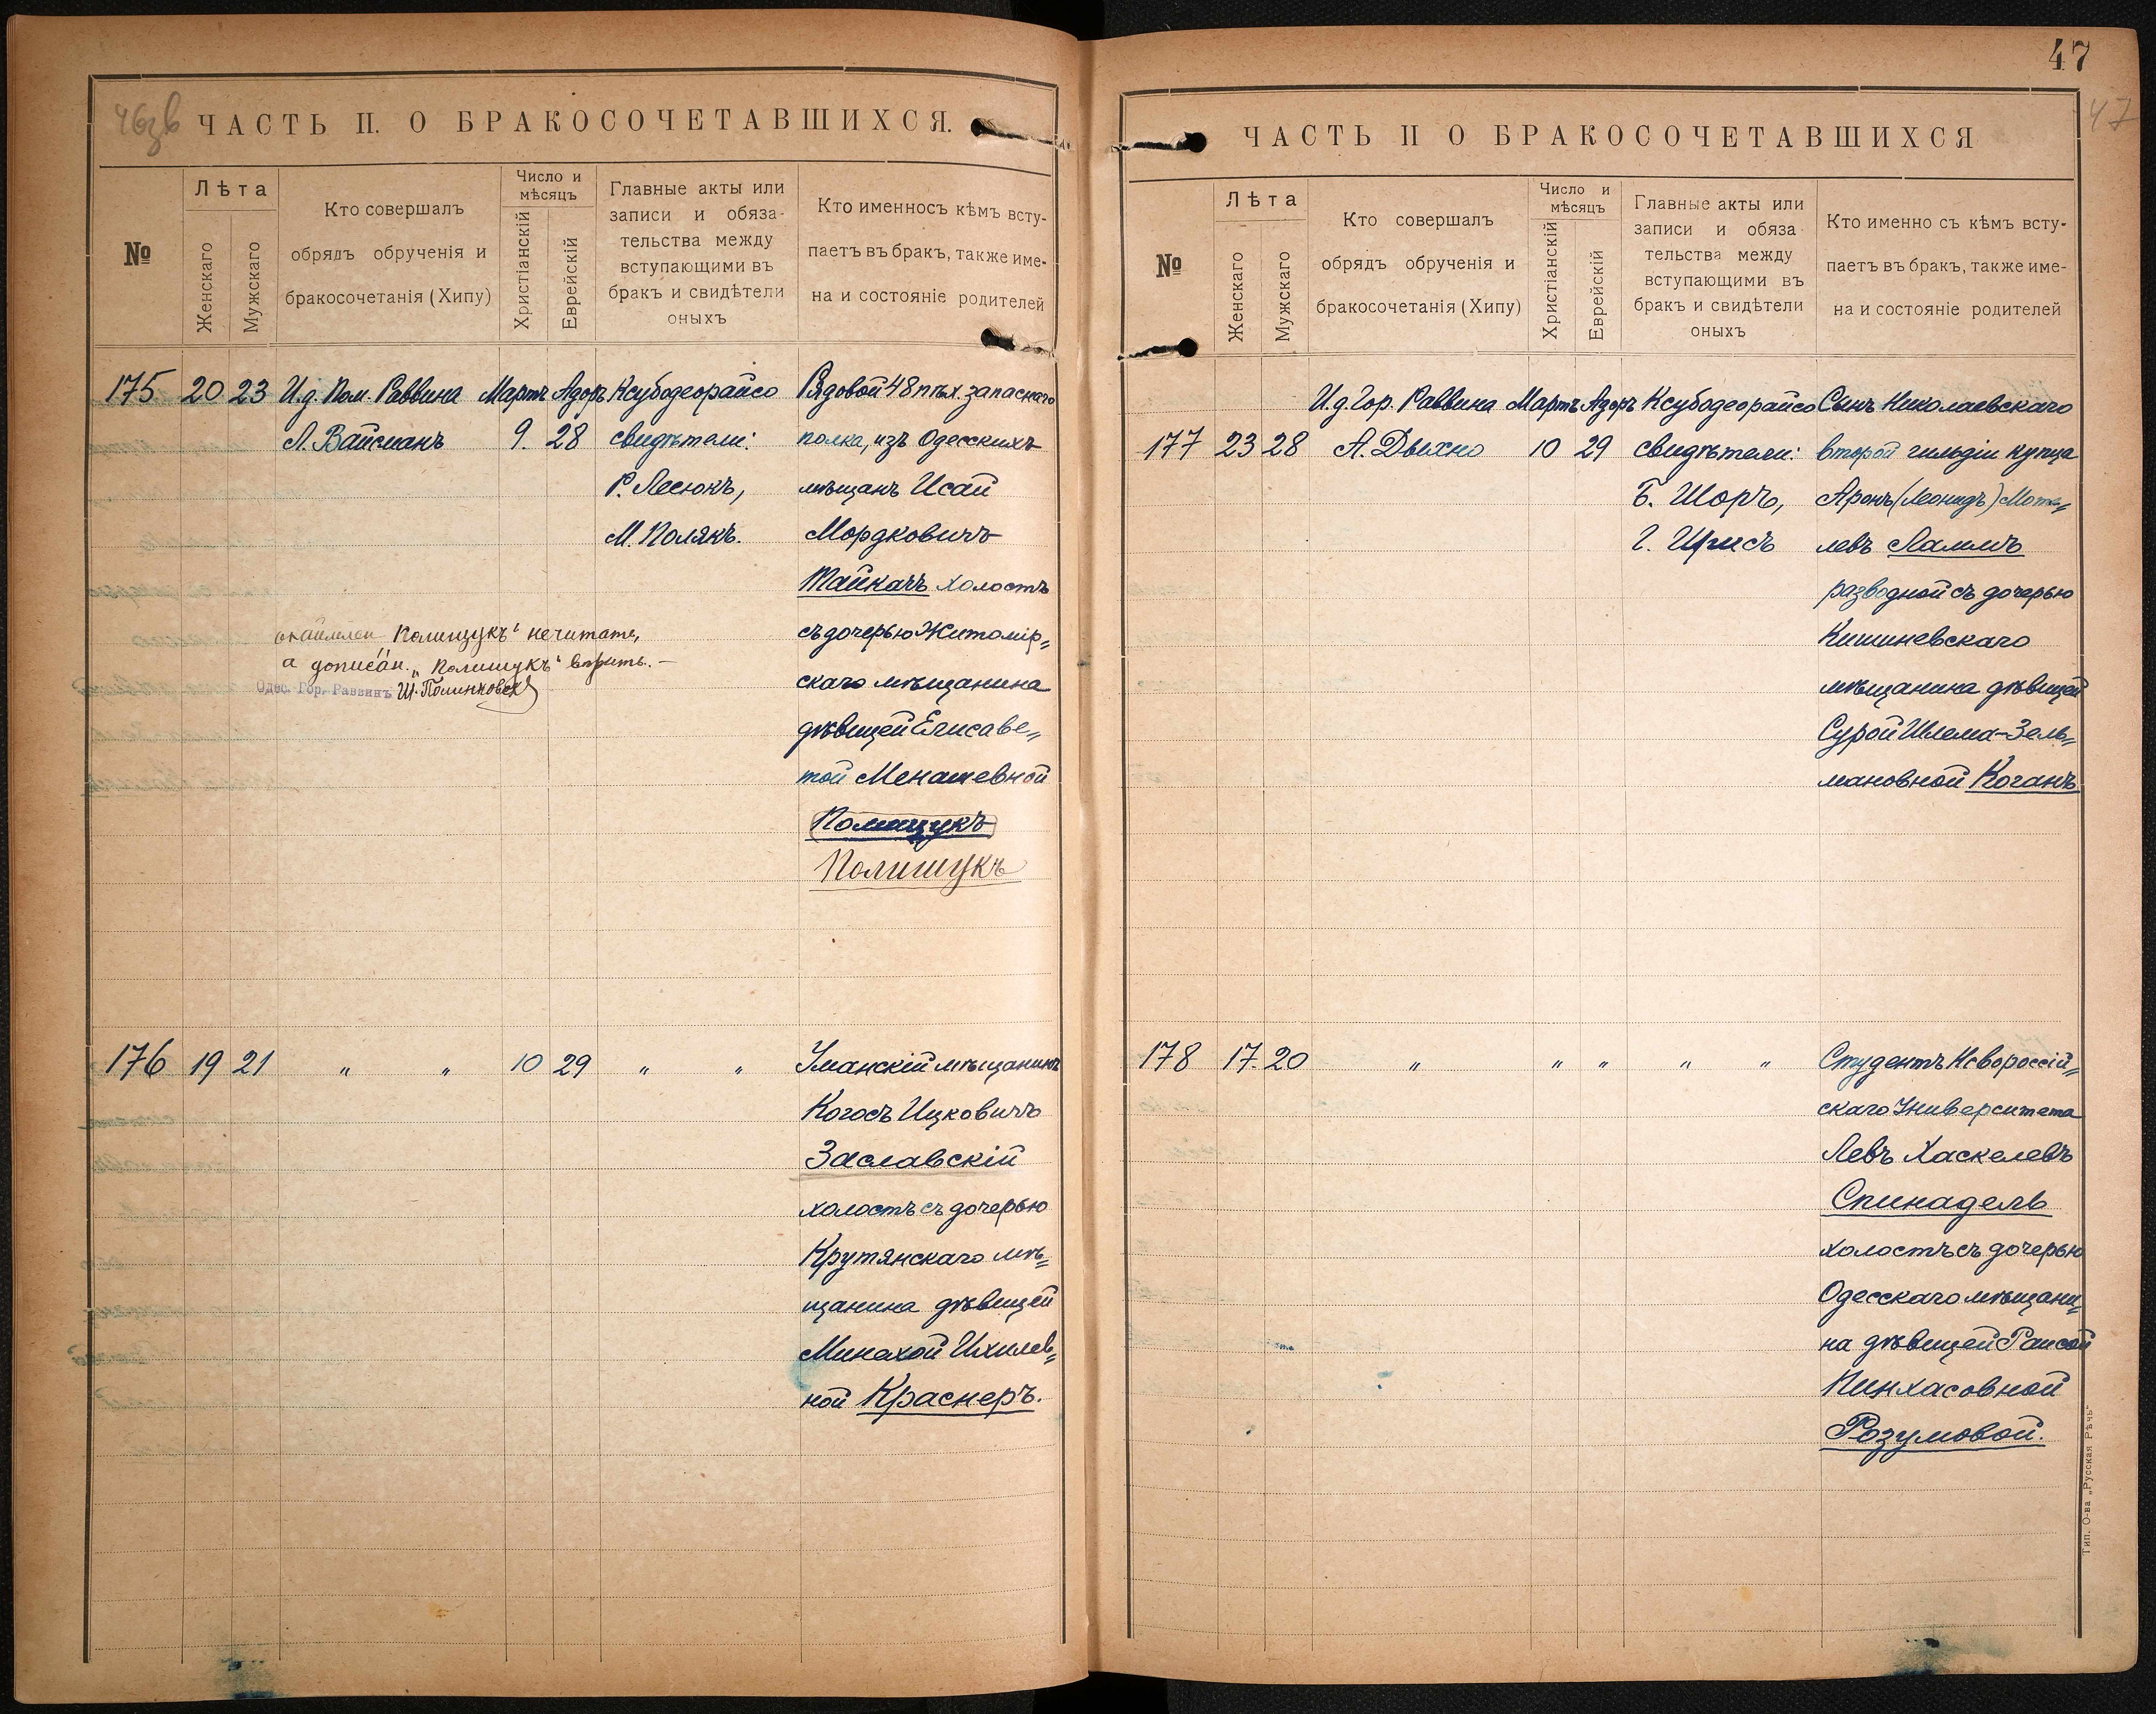 ЧАСТЬ II. О БРАКОСОЧЕТАВШИХСЯ.
№
Лѣта
Женскаго
Мужскаго
Кто совершалъ
обрядъ обрученія и
бракосочетанія (Хипу)
Число и
мѣсяцъ
Христіанскій
Еврейскій
Главные акты или
записи и обяза-
тельства между
вступающими въ
бракъ и свидѣтели
оныхъ
Кто именносъ кѣмъ всту-
паетъ въ бракъ, также име-
на и состояніе родителей
175 20 23 И.д. Пом. Раввина Мартъ Адоръ Ксубодеорайсо Рядовой 48 пѣх. запаснаго
Л. Вайсманъ 9. 28 свидѣтели: полка, изъ Одесскихъ
Р. Лесюкъ, мѣщанъ Исай
М. Полякъ. Мордковичъ
Тайкачъ холостъ
съ дочерью Житомір„
скаго мѣщанина
дѣвицей Елисаве„
той Менашевной
Полищукъ
Полишукъ
„Полищукъ“ не читать,
а дописан. „Полишукъ“ вѣрить. —
Одес. Гор. Раввинъ
176 19 21 „ „ 10 29 „ „ Уманскій мѣщанинъ
Когосъ Ицковичъ
Заславскій
холостъ съ дочерью
Крутянскаго мѣ„
щанина дѣвицей
Минехой Ихилев„
ной Краснеръ.
47
47
ЧАСТЬ II О БРАКОСОЧЕТАВШИХСЯ
№
Лѣта
Женскаго
Мужскаго
Кто совершалъ
обрядъ обрученія и
бракосочетанія (Хипу)
Число и
мѣсяцъ
Христіанскій
Еврейскій
Главные акты или
записи и обяза
тельства между
вступающими въ
бракъ и свидѣтели
оныхъ
Кто именно съ кѣмъ всту-
паетъ въ бракъ, также име-
на и состояніе родителей
И.д. Гор. Раввина Мартъ Адоръ Ксубодеорайсо Сынъ Николаевскаго
177 23 28 А. Дыхно 10 29 свидѣтели: второй гильдіи купца
Б. Шоръ, Аронъ (Леонидъ) Моте„
Г. левъ
разводной съ дочерью
Кишиневскаго
мѣщанина дѣвицей
Сурой Шлема-Зель„
мановной Коганъ
178 17. 20 „ „ „ „ „ Студентъ Новороссій„
скаго Университета
Левъ Хаскелевъ
Спинадель
холостъ съ дочерью
Одесскаго мѣщани„
на дѣвицей Раисой
Пинхасовной
Розумовой.
Тип. О-ва „Русская Рѣчь“